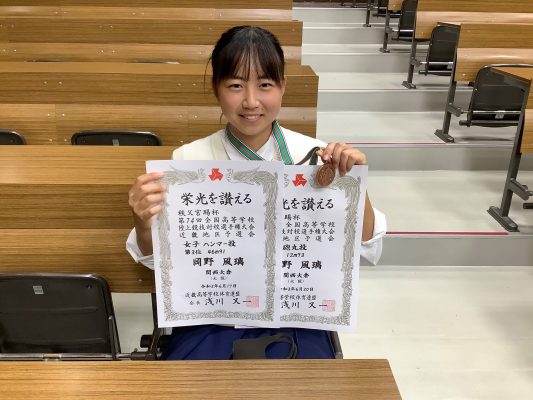 栄光を讃える
秩父宮賜杯
第74回全国高等学校
陸上競技対校選手権大会
近畿地区予選会
女子 ハンマー投
第3位 46m91
岡野 風璃
関西大倉
(大阪)
令和3年6月19日
近畿高等学校体育連盟
会長 浅川 又一
光を讃える
賜杯
全国高等学校
技対校選手権大会
地区予選会
砲丸投
12m73
野 風璃
関西大倉
(大阪)
和3年6月20日
等学校体育連盟
浅川 又一